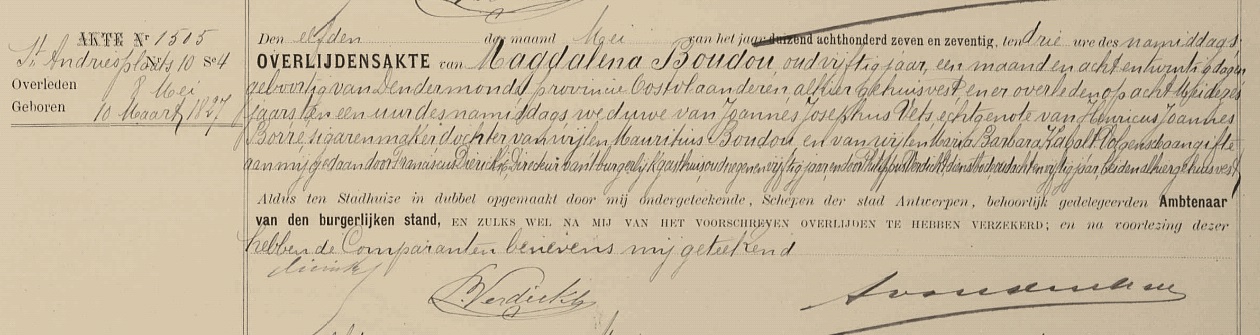 AKTE Nr 1505
St Andriesplaats Nr 10 Se 4
Overleden 8 Mei
Geboren 10 Maart 1827
Den elfden der maand Mei van het jaar duizend achthonderd zeven en zeventig, ten drie ure des namiddags
OVERLIJDENSAKTE van Magdalena Boudou, oud vijftig jaar, een maand en acht en twintig dagen
geboortig van Dendermonde, provincie Oostvlaanderen, alhier gehuisvest, en er overleden op acht Mei dezes
jaars ten een uur des namiddags weduwe van Joannes Josephus Vets, echtgenote van Henricus Joannes
Borre, sigarenmaker, dochter van wijlen Mauritius Boudou en van wijlen Maria Barbara Volgens de aangifte
aan mij gedaan door Franciscus Dierickx, Directeur van 't burgerlijk gasthuis, oud negen en vijftig jaar, en door Philippus Verdickt, oud acht en vijftig jaar, beiden alhier gehuisvest
Aldus ten Stadhuize in dubbel opgemaakt door mij ondergeteekende, Schepen der stad Antwerpen, behoorlijk gedelegeerden Ambtenaar
van den burgerlijken stand, EN ZULKS WEL NA MIJ VAN HET VOORSCHREVEN OVERLIJDEN TE HEBBEN VERZEKERD; en na voorlezing dezer
hebben de Comparanten benevens mij geteekend
P. Verdickt